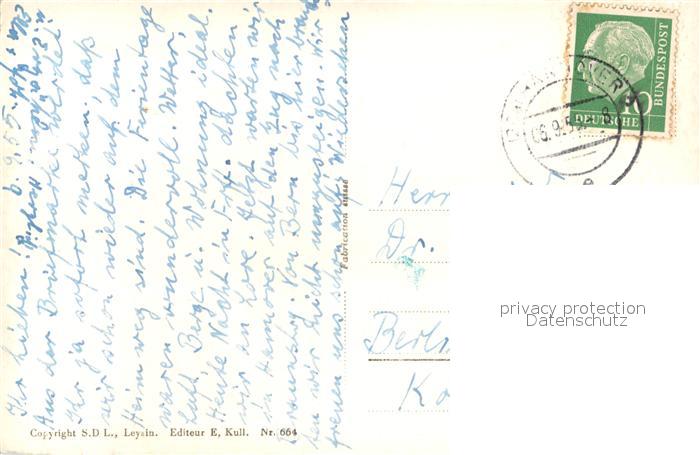 Ihr Lieben! 6.9.55.
Aus der Briefmarke werdet
Ihr ja sofort merken, daß
wir schon wieder auf dem
Heimweg sind. Die Ferientage
waren wundervoll. Wetter,
Luft, Berge u. Wohnung ideal.
Heute Nacht in Frft. dachten
wir an Lore. Jetzt warten wir
in Hannover auf den Zug nach
Braunschwg. Von Bern bis hier brauch-
ten wir nicht umzusteigen. Wir
freuen uns schon auf's Wiedersehen
Herzlich
Fabrication suisse
Copyright S.D L., Leysin. Editeur E, Kull. Nr. 664
DEUTSCHE
BUNDESPOST
10
HANNOVER
06.9.5
Herr
Dr.
Berli
Ko
privacy protection
Datenschutz